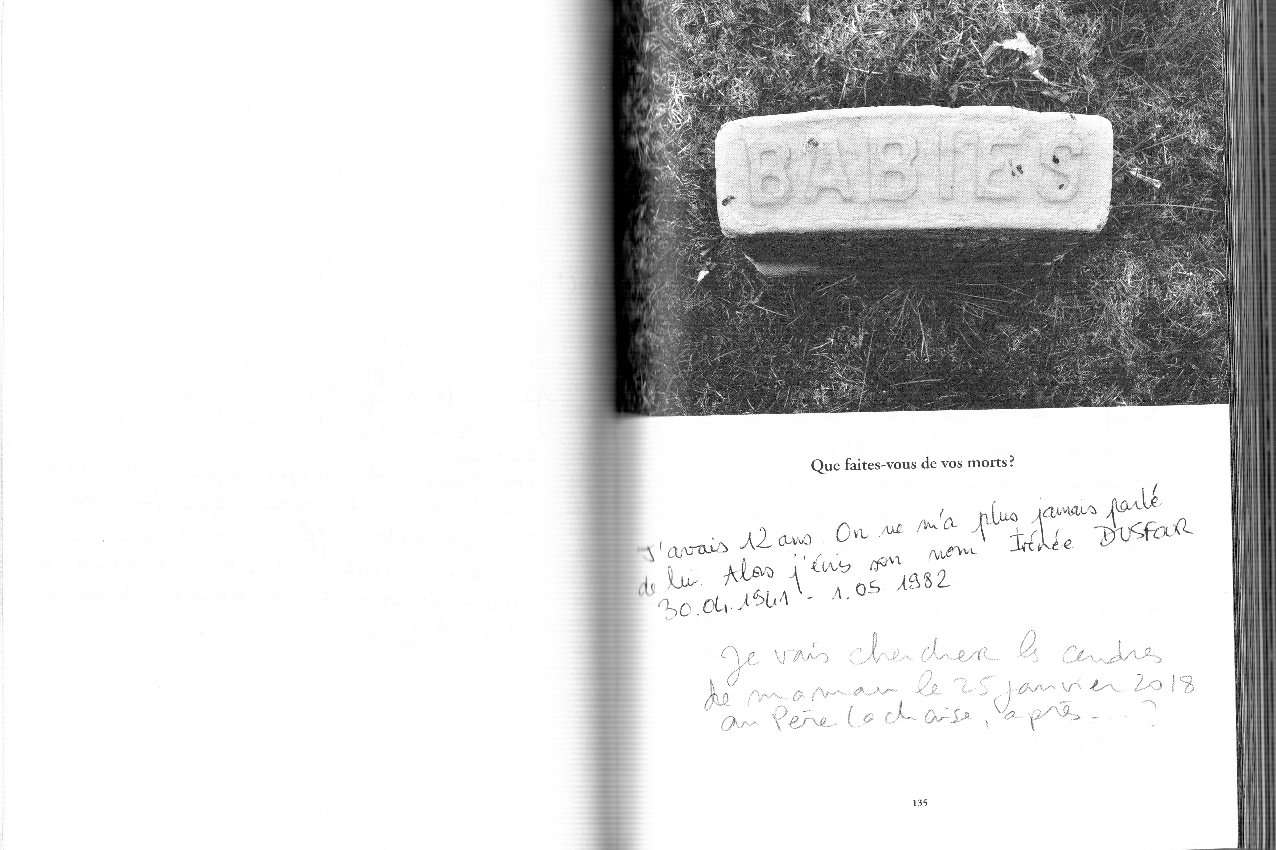 BABIES
Que faites-vous de vos morts?
J'avais 12 ans. On ne m'a plus jamais parlé
de lui. Alors j'écris son nom Irénée DUSFOUR
30.04.1941 - 1.05 1982
Je vais chercher le cendres
de maman le 25 janvier 2018
au Père Lachaise, après.... ?
135